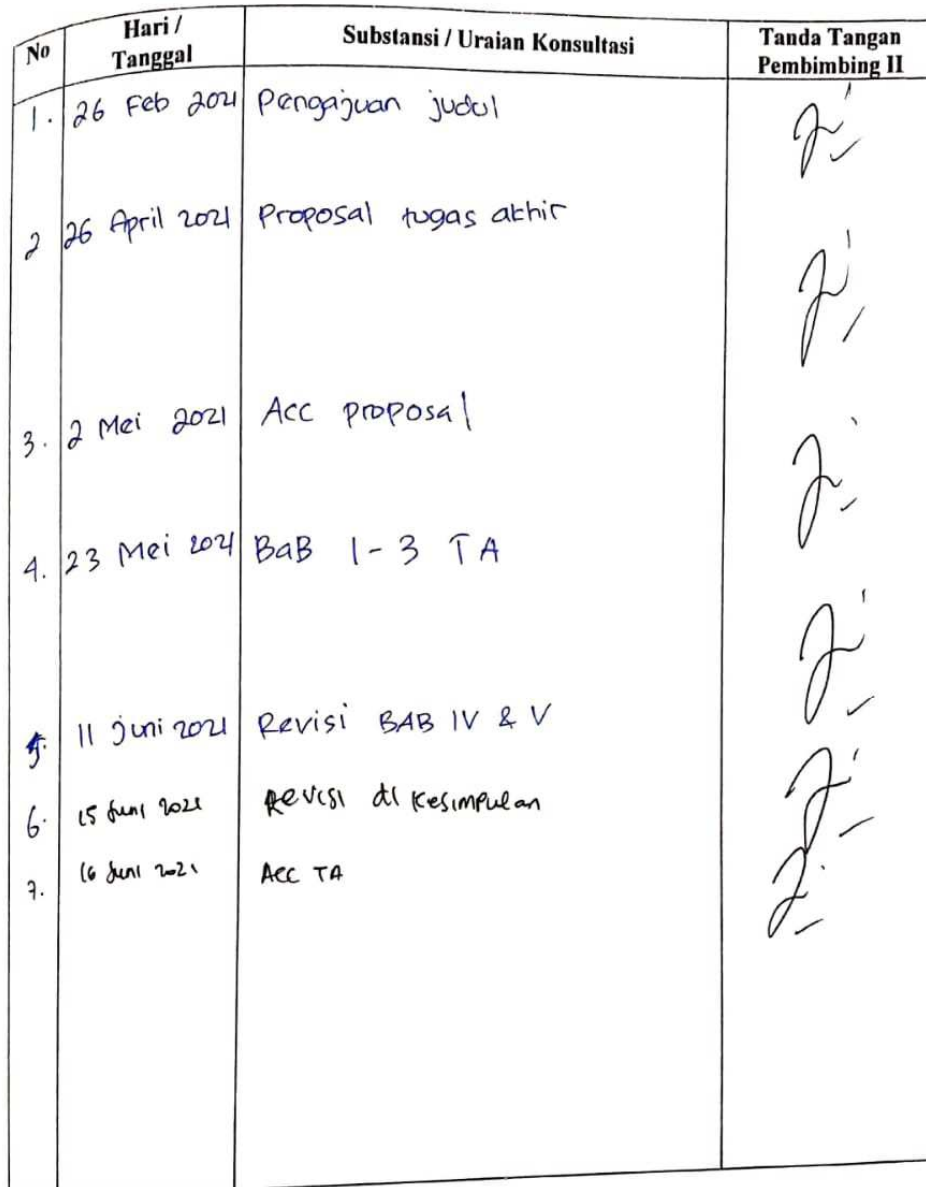 No Hari / Tanggal Substansi / Uraian Konsultasi Tanda Tangan Pembimbing II
1. 26 Feb 2021 Pengajuan judul
2 26 April 2021 Proposal tugas akhir
3. 2 Mei 2021 Acc proposal
4. 23 Mei 2021 BaB 1-3 TA
5. 11 Juni 2021 Revisi BAB IV & V
6. 15 Juni 2021 Revisi di Kesimpulan
7. 16 Juni 2021 Acc TA